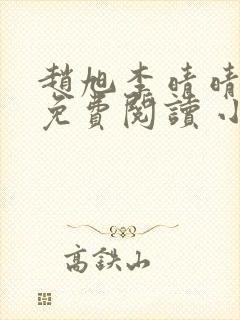 趙旭李晴晴
免費閱讀小
高鉄山